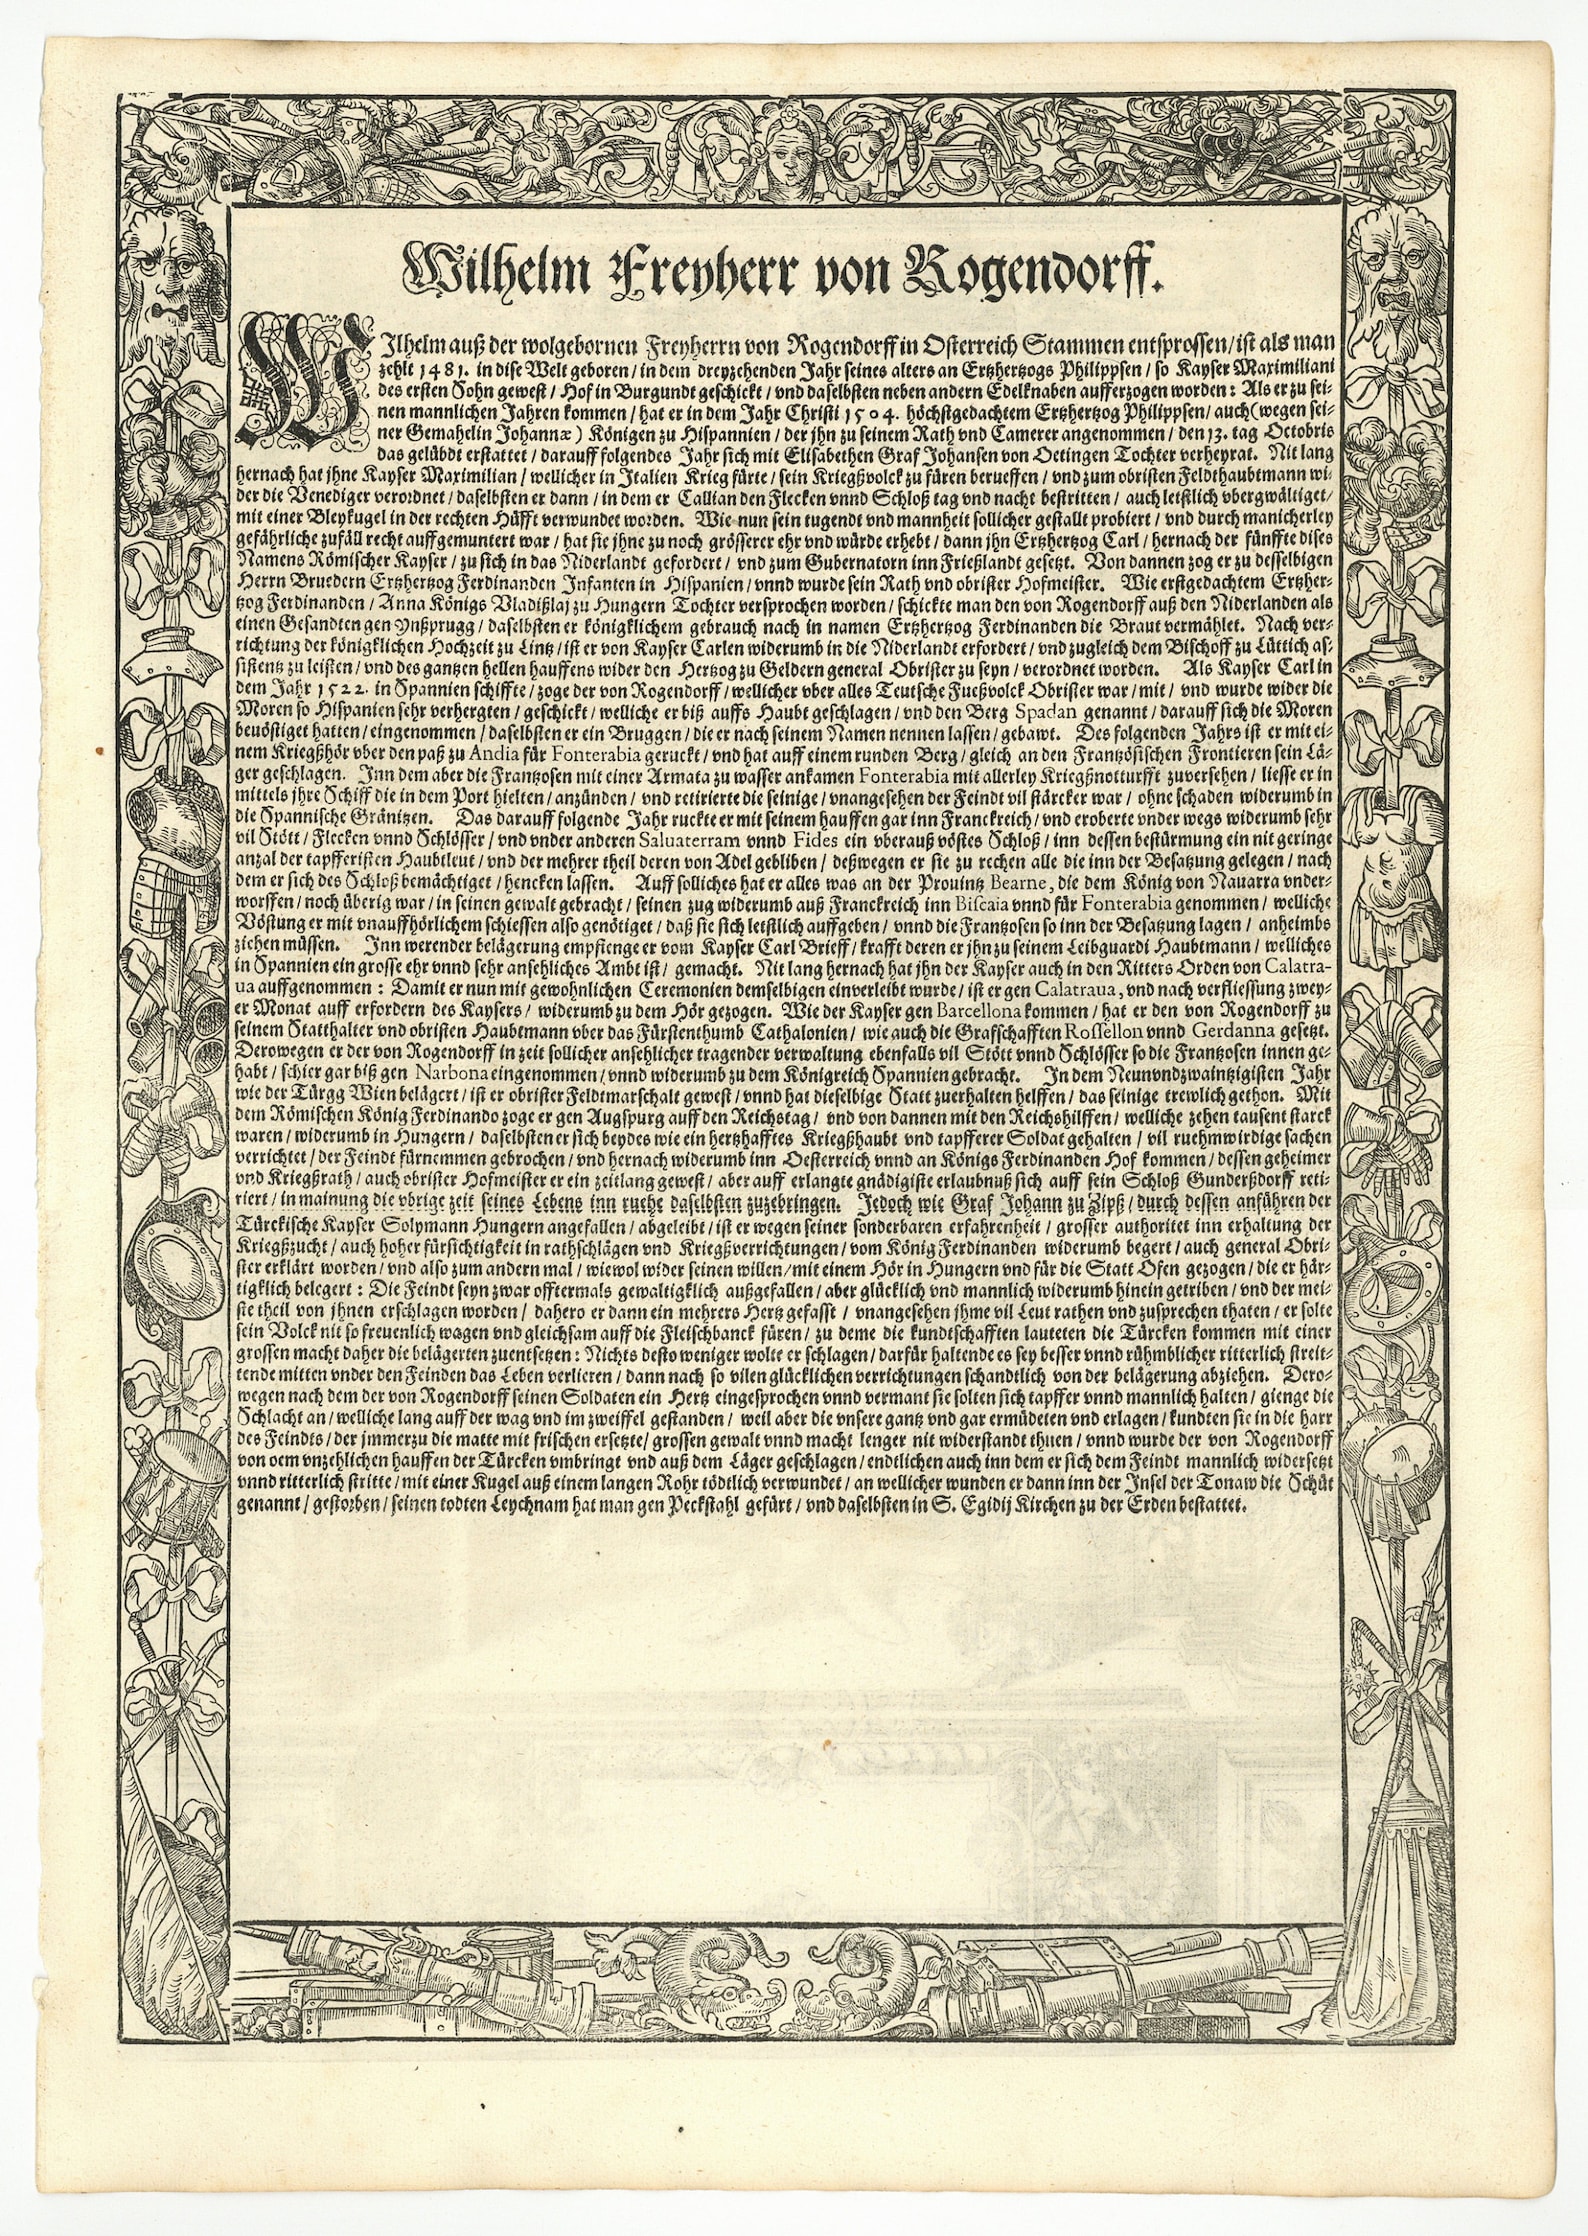 Wilhelm Freyherr von Rogendorff.
WIlhelm auß der wolgebornen Freyherrn von Rogendorff in Osterreich Stammen entsprossen/ ist als man
zehlt 1481. in dise Welt geboren/ in dem dreyzehenden Jahr seines alters an Ertzhertzogs Philippsen/ so Kayser Maximiliani
des ersten Sohn gewest/ Hof in Burgundt geschickt/ vnd daselbsten neben andern Edelknaben aufferzogen worden: Als er zu sei-
nen mannlichen Jahren kommen/ hat er in dem Jahr Christi 1504. höchstgedachtem Ertzhertzog Philippsen/ auch (wegen sei-
ner Gemahelin Johannæ) Königen zu Hispannien/ der jhn zu seinem Rath vnd Camerer angenommen/ den 13. tag Octobris
das gelübdt erstattet/ darauff folgendes Jahr sich mit Elisabethen Graf Johansen von Oetingen Tochter verheyrat. Nit lang
hernach hat jhne Kayser Maximilian/ wellicher in Italien Krieg fürte/ sein Kriegßvolck zu füren berueffen/ vnd zum obristen Feldthaubtmann wi-
der die Venediger verordnet/ daselbsten er dann/ in dem er Callian den Flecken vnnd Schloß tag vnd nacht bestritten/ auch letstlich vbergwältiget/
mit einer Bleykugel in der rechten Hüfft verwundet worden. Wie nun sein tugendt vnd mannheit sollicher gestallt probiert/ vnd durch manicherley
gefährliche zufäll recht auffgemuntert war/ hat sie jhne zu noch grösserer ehr vnd würde erhebt/ dann jhn Ertzhertzog Carl/ hernach der fünffte dises
Namens Römischer Kayser/ zu sich in das Niderlandt gefordert/ vnd zum Gubernatorn inn Frießlandt gesetzt. Von dannen zog er zu desselbigen
Herrn Bruedern Ertzhertzog Ferdinanden Infanten in Hispanien/ vnnd wurde sein Rath vnd obrister Hofmeister. Wie erstgedachtem Ertzher-
tzog Ferdinanden/ Anna Königs Vladißlaj zu Hungern Tochter versprochen worden/ schickte man den von Rogendorff auß den Niderlanden als
einen Gesandten gen Ynßprugg/ daselbsten er königklichem gebrauch nach in namen Ertzhertzog Ferdinanden die Braut vermählet. Nach ver-
richtung der königklichen Hochzeit zu Lintz/ ist er von Kayser Carlen widerumb in die Niderlandt erfordert/ vnd zugleich dem Bischoff zu Lüttich as-
sistentz zu leisten/ vnd des gantzen hellen hauffens wider den Hertzog zu Geldern general Obrister zu seyn/ verordnet worden. Als Kayser Carl in
dem Jahr 1522. in Spannien schiffte/ zoge der von Rogendorff/ wellicher vber alles Teutsche Fueßvolck Obrister war/ mit/ vnd wurde wider die
Moren so Hispanien sehr verhergten/ geschickt/ welliche er biß auffs Haubt geschlagen/ vnd den Berg Spadan genannt/ darauff sich die Moren
bevöstiget hatten/ eingenommen/ daselbsten er ein Bruggen/ die er nach seinem Namen nennen lassen/ gebawt. Des folgenden Jahrs ist er mit ei-
nem Kriegßhör vber den paß zu Andia für Fonterabia geruckt/ vnd hat auff einem runden Berg/ gleich an den Frantzösischen Frontieren sein Lä-
ger geschlagen. Inn dem aber die Frantzosen mit einer Armata zu wasser ankamen Fonterabia mit allerley Kriegßnotturfft zuversehen/ liesse er in
mittels jhre Schiff die in dem Port hielten/ anzünden/ vnd retirierte die seinige/ vnangesehen der Feindt vil stärcker war/ ohne schaden widerumb in
die Spannische Gränitzen. Das darauff folgende Jahr ruckte er mit seinem hauffen gar inn Franckreich/ vnd eroberte vnder wegs widerumb sehr
vil Stött/ Flecken vnnd Schlösser/ vnd vnder anderen Saluaterram vnnd Fides ein vberauß vöstes Schloß/ inn dessen bestürmung ein nit geringe
anzal der tapfferisten Haubtleut/ vnd der mehrer theil deren von Adel gebliben/ deßwegen er sie zu rechen alle die inn der Besatzung gelegen/ nach
dem er sich des Schloß bemächtiget/ hencken lassen. Auff solliches hat er alles was an der Prouintz Bearne, die dem König von Nauarra vnder-
worffen/ noch überig war/ in seinen gewalt gebracht/ seinen zug widerumb auß Franckreich inn Biscaia vnnd für Fonterabia genommen/ welliche
Vöstung er mit vnauffhörlichem schiessen also genötiget/ daß sie sich letstlich auffgeben/ vnnd die Frantzosen so inn der Besatzung lagen/ anheimbs
ziehen müssen. Inn werender belägerung empfienge er vom Kayser Carl Brieff/ krafft deren er jhn zu seinem Leibguardi Haubtmann/ welliches
in Spannien ein grosse ehr vnnd sehr ansehliches Ambt ist/ gemacht. Nit lang hernach hat jhn der Kayser auch in den Ritters Orden von Calatra-
ua auffgenommen: Damit er nun mit gewohnlichen Ceremonien demselbigen einverleibt wurde/ ist er gen Calatraua, vnd nach verfliessung zwey-
er Monat auff erfordern des Kaysers/ widerumb zu dem Hör gezogen. Wie der Kayser gen Barcellona kommen/ hat er den von Rogendorff zu
seinem Statthalter vnd obristen Haubtmann vber das Fürstenthumb Cathalonien/ wie auch die Grafschafften Rossellon vnnd Gerdanna gesetzt.
Derowegen er der von Rogendorff in zeit sollicher ansehlicher tragender verwaltung ebenfalls vil Stött vnnd Schlösser so die Frantzosen innen ge-
habt/ schier gar biß gen Narbona eingenommen/ vnnd widerumb zu dem Königreich Spannien gebracht. In dem Neunvndzwaintzigisten Jahr
wie der Türgg Wien belägert/ ist er obrister Feldtmarschalt gewest/ vnnd hat dieselbige Statt zuerhalten helffen/ das seinige trewlich gethon. Mit
dem Römischen König Ferdinando zoge er gen Augspurg auff den Reichstag/ vnd von dannen mit den Reichshilffen/ welliche zehen tausent starck
waren/ widerumb in Hungern/ daselbsten er sich beydes wie ein hertzhafftes Kriegßhaubt vnd tapfferer Soldat gehalten/ vil ruehmwirdige sachen
verrichtet/ der Feindt fürnemmen gebrochen/ vnd hernach widerumb inn Oesterreich vnnd an Königs Ferdinanden Hof kommen/ dessen geheimer
vnd Kriegßrath/ auch obrister Hofmeister er ein zeitlang gewest/ aber auff erlangte gnädigiste erlaubnuß sich auff sein Schloß Gunderßdorff reti-
riert/ in mainung die vbrige zeit seines Lebens inn ruehe daselbsten zuzebringen. Jedoch wie Graf Johann zu Zipß/ durch dessen anführen der
Türckische Kayser Solymann Hungern angefallen/ abgeleibt/ ist er wegen seiner sonderbaren erfahrenheit/ grosser authoritet inn erhaltung der
Kriegßzucht/ auch hoher fürsichtigkeit in rathschlägen vnd Kriegßverrichtungen/ vom König Ferdinanden widerumb begert/ auch general Obri-
ster erklärt worden/ vnd also zum andern mal/ wiewol wider seinen willen/ mit einem Hör in Hungern vnd für die Statt Ofen gezogen/ die er här-
tigklich belegert: Die Feindt seyn zwar offtermals gewaltigklich außgefallen/ aber glücklich vnd mannlich widerumb hinein getriben/ vnd der mei-
ste theil von jhnen erschlagen worden/ dahero er dann ein mehrers Hertz gefasst/ vnangesehen jhme vil Leut rathen vnd zusprechen thaten/ er solte
sein Volck nit so freuenlich wagen vnd gleichsam auff die Fleischbanck füren/ zu deme die kundtschafften lauteten die Türcken kommen mit einer
grossen macht daher die belägerten zuentsetzen: Nichts desto weniger wolte er schlagen/ darfür haltende es sey besser vnnd rühmblicher ritterlich streit-
tende mitten vnder den Feinden das Leben verlieren/ dann nach so vilen glücklichen verrichtungen schandtlich von der belägerung abziehen. Dero-
wegen nach dem der von Rogendorff seinen Soldaten ein Hertz eingesprochen vnnd vermant sie solten sich tapffer vnnd mannlich halten/ gienge die
Schlacht an/ welliche lang auff der wag vnd im zweiffel gestanden/ weil aber die vnsere gantz vnd gar ermüdeten vnd erlagen/ kundten sie in die harr
des Feindts/ der jmmerzu die matte mit frischen ersetzte/ grossen gewalt vnnd macht lenger nit widerstandt thuen/ vnnd wurde der von Rogendorff
von dem vnzehlichen hauffen der Türcken vmbringt vnd auß dem Läger geschlagen/ endtlichen auch inn dem er sich dem Feindt mannlich widersetzt
vnnd ritterlich stritte/ mit einer Kugel auß einem langen Rohr tödtlich verwundet/ an wellicher wunden er dann inn der Insel der Tonaw die Schüt
genannt/ gestorben/ seinen todten Leychnam hat man gen Peckstahl gefürt/ vnd daselbsten in S. Egidij Kirchen zu der Erden bestattet.